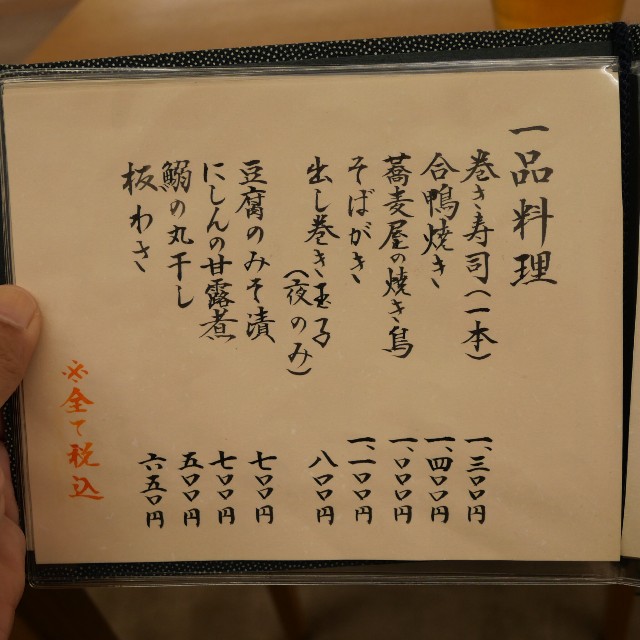 一品料理
巻き寿司(一本) 一、三〇〇円
合鴨焼き 一、四〇〇円
蕎麦屋の焼き鳥 一、〇〇〇円
そばがき 一、一〇〇円
出し巻き玉子 八〇〇円
(夜のみ)
豆腐のみそ漬 七〇〇円
にしんの甘露煮 七〇〇円
鰯の丸干し 五〇〇円
板わさ 六五〇円
※全て税込